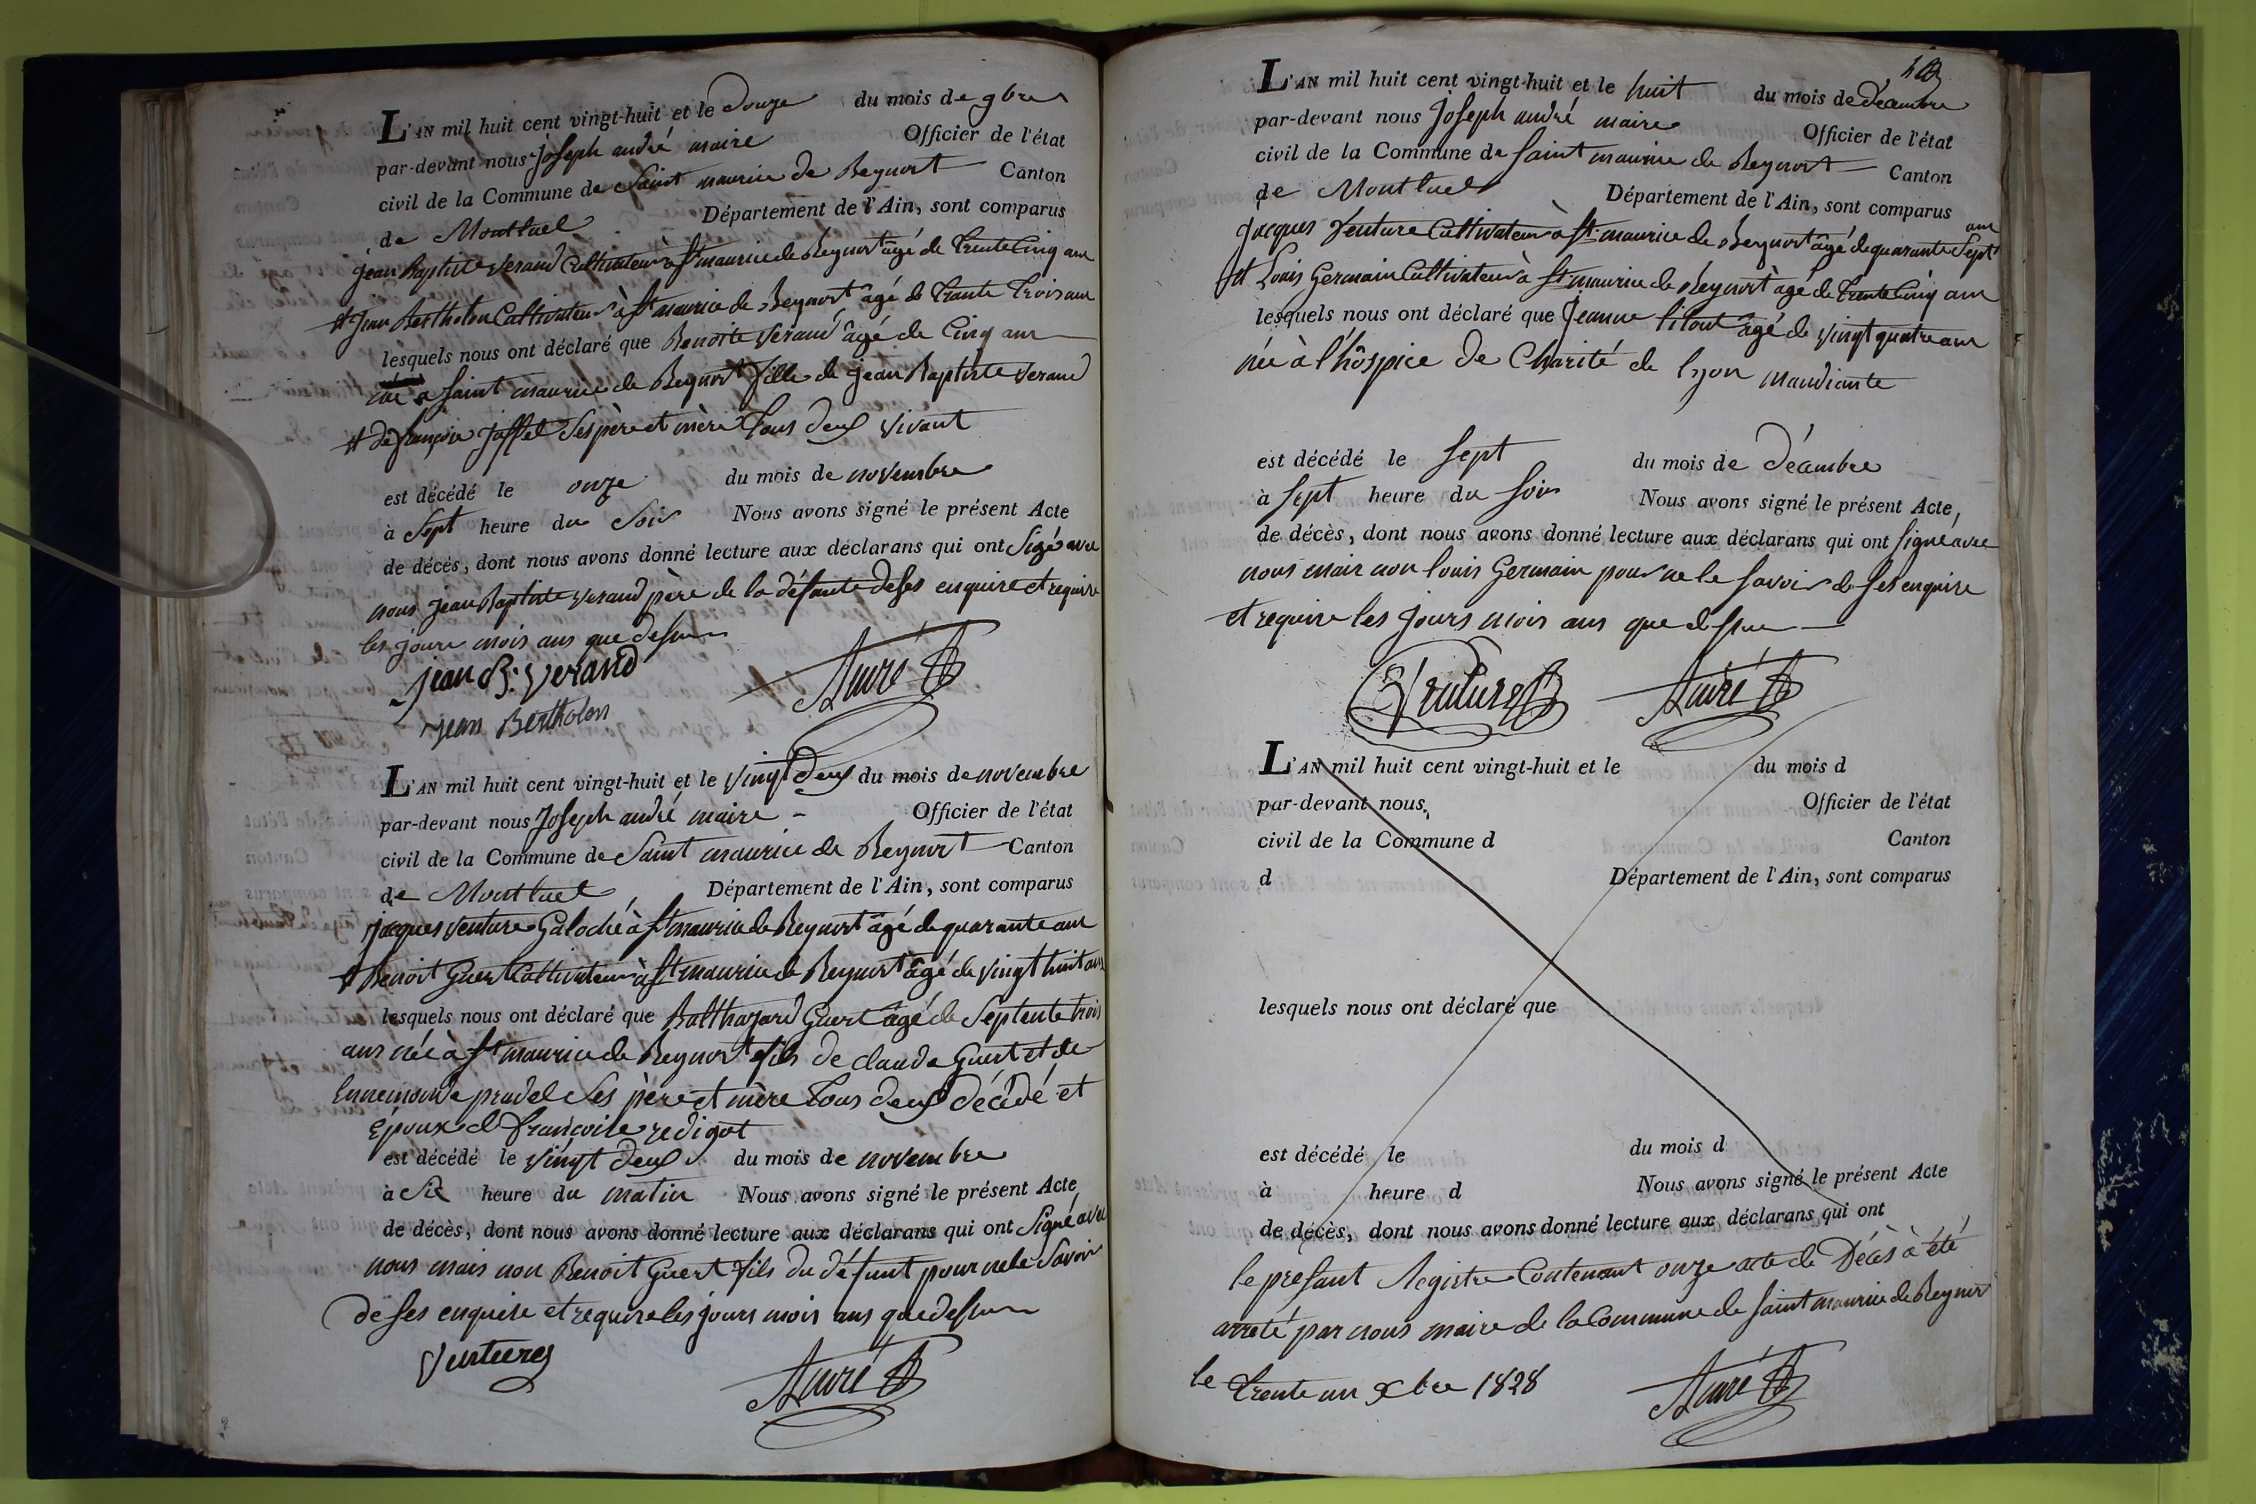 L'AN mil huit cent vingt-huit et le Douze du mois de 9bre
par-devant nous Joseph andré maire Officier de l'état
civil de la Commune de Saint maurice de Beynost Canton
de Montluel Département de l'Ain, sont comparus
jean Baptiste Verand Cultivateur à St maurice de Beynost âgé de trente Cinq ans
et Jean Bertholon Cultivateur à St maurice de Beynost âgé de trante trois ans
lesquels nous ont déclaré que Benoite Verand âgé de Cinq ans
née a Saint maurice de Beynost fille de jean Baptiste Verand
et de françoise Joffel Ses père et mère tous deux vivant
est décédé le onze du mois de novembre
à Sept heure du Soir Nous avons signé le présent Acte
de décès, dont nous avons donné lecture aux déclarans qui ont Signé avec
nous jean Baptiste Verand père de la défunte de ses enquire et require
les jours mois ans que dessus
jean B. Verand
jean Bertholon
André
L'AN mil huit cent vingt-huit et le vingt deux du mois de novembre
par-devant nous Joseph andré maire Officier de l'état
civil de la Commune de Saint maurice de Beynost Canton
de Montluel Département de l'Ain, sont comparus
jacques Venture Galoché à St maurice de Beynost âgé de quarante ans
et Benoit Guert Cultivateur à St maurice de Beynost âgé de vingt huit ans
lesquels nous ont déclaré que Balthazard Guert âgé de Septente trois
ans née à St maurice de Beynost fils de claude Guert et de
Ennemonde pradel Ses père et mère tous deux décédé et
Époux de françoise redigot
est décédé le vingt deux du mois de novembre
à Six heure du matin Nous avons signé le présent Acte
de décès, dont nous avons donné lecture aux déclarans qui ont Signé avec
nous mais non Benoit Guert fils du défunt pour ne le Savoir
de ses enquire et require les jours mois ans que dessus
Venture
André
L'AN mil huit cent vingt-huit et le huit du mois de décembre
par-devant nous Joseph andré maire Officier de l'état
civil de la Commune de Saint maurice de Beynost Canton
de Montluel Département de l'Ain, sont comparus
Jacques Venture Cultivateur à St maurice de Beynost âgé de quarante Sept ans
et Louis Germain Cultivateur à St maurice de Beynost âgé de trente Cinq ans
lesquels nous ont déclaré que Jeanne âgé de vingt quatre ans
née à l'hôspice de Charité de lyon mandiante
est décédé le Sept du mois de décembre
à Sept heure du Soir Nous avons signé le présent Acte,
de décès, dont nous avons donné lecture aux déclarans qui ont Signé avec
nous mair non louis Germain pour ne le Savoir de ses enquire
et require les jours mois ans que dessus
Venture
André
L'AN mil huit cent vingt-huit et le du mois d
par-devant nous, Officier de l'état
civil de la Commune d Canton
d Département de l'Ain, sont comparus
lesquels nous ont déclaré que
est décédé le du mois d
à heure d Nous avons signé le présent Acte
de décès, dont nous avons donné lecture aux déclarans qui ont
le presant Registre Contenant onze acte de Décès à été
arreté par nous maire de la Commune de Saint maurice de Beynost
le trente un xbre 1828
André